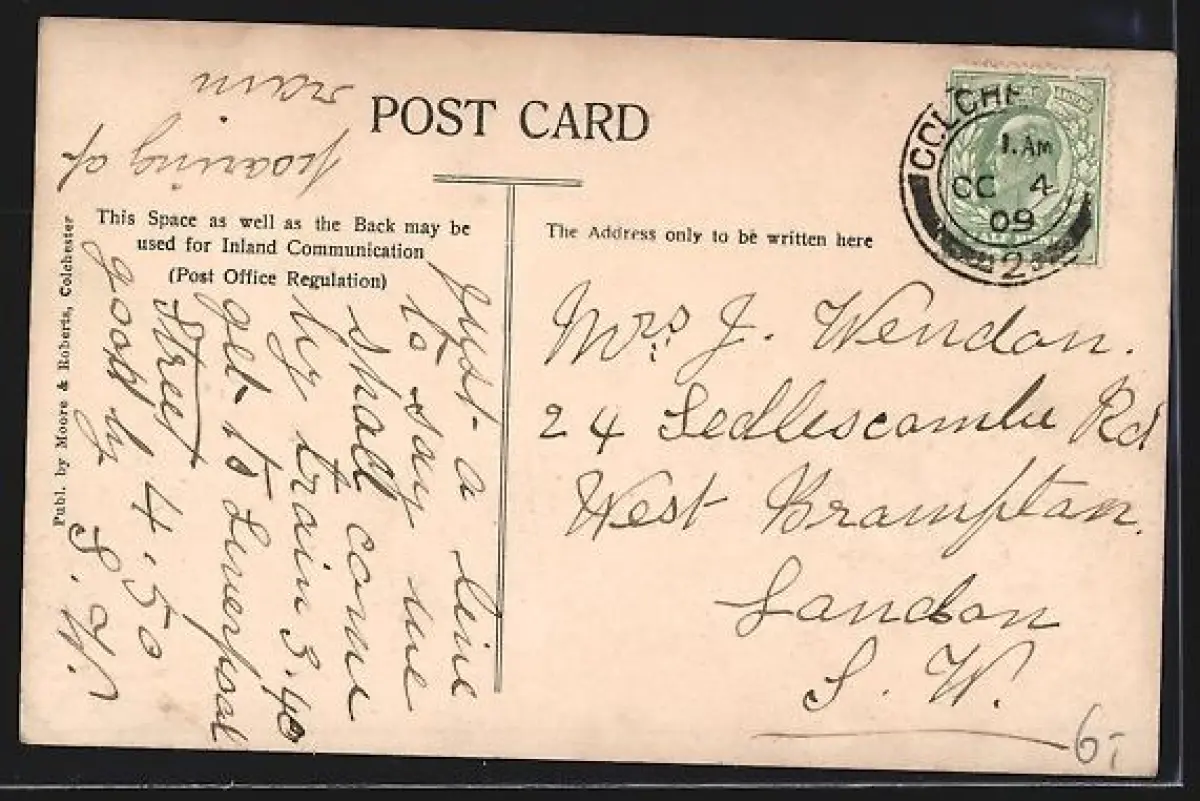 POST CARD
This Space as well as the Back may be
used for Inland Communication
(Post Office Regulation)
The Address only to be written here
Publ. by Moore & Roberts, Colchester
COLCHE
1. AM
OC 4
09
2
Mrs J. Wendon.
24 Sedlescombe Rd
West Brompton.
London
S. W.
6,-
Just a line
to say we
shall come
by train 3.40
get to Liverpool
Street 4.50
good by
S. W.
poaring of
rain